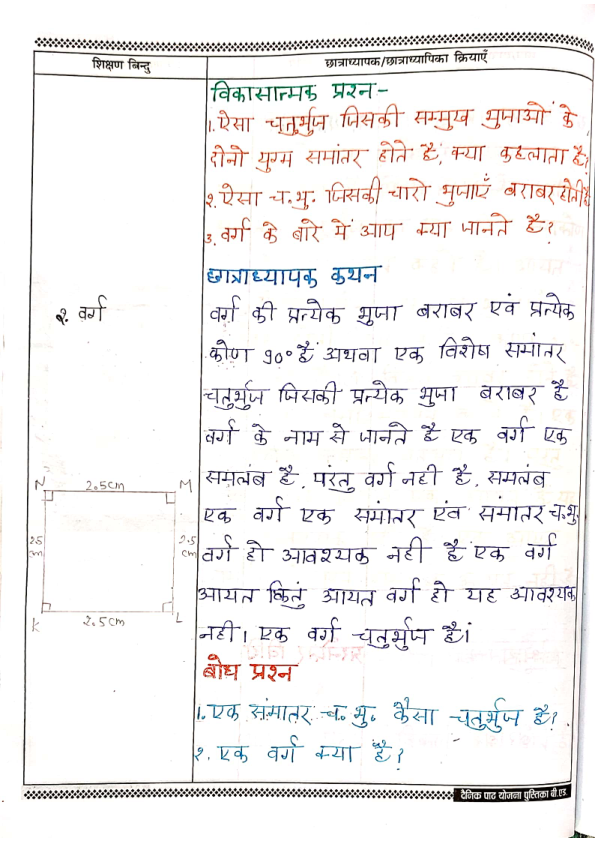 शिक्षण बिन्दु
छात्राध्यापक/छात्राध्यापिका क्रियाएँ
विकासात्मक प्रश्न-
1. ऐसा चतुर्भुज जिसकी सम्मुख भुजाओं के
दोनो युग्म समांतर होते है, क्या कहलाता है?
२. ऐसा च.भु. जिसकी चारो भुजाएँ बराबर होती है
3. वर्ग के बारे में आप क्या जानते है?
छात्राध्यापक कथन
२. वर्ग
वर्ग की प्रत्येक भुजा बराबर एवं प्रत्येक
कोण 90° है अथवा एक विशेष समांतर
चतुर्भुज जिसकी प्रत्येक भुजा बराबर है
वर्ग के नाम से जानते है एक वर्ग एक
समलंब है, परंतु वर्ग नही है, समलंब
एक वर्ग एक समांतर एंव समांतर च.भु.
वर्ग हो आवश्यक नही है एक वर्ग
आयत किंतु आयत वर्ग हो यह आवश्यक
नही। एक वर्ग चतुर्भुज है।
N 2.5cm M
2.5 cm
2.5 cm
K 2.5cm L
बोध प्रश्न
1. एक समांतर च. भु. कैसा चतुर्भुज है?
२. एक वर्ग क्या है?
दैनिक पाठ योजना पुस्तिका बी.एड.